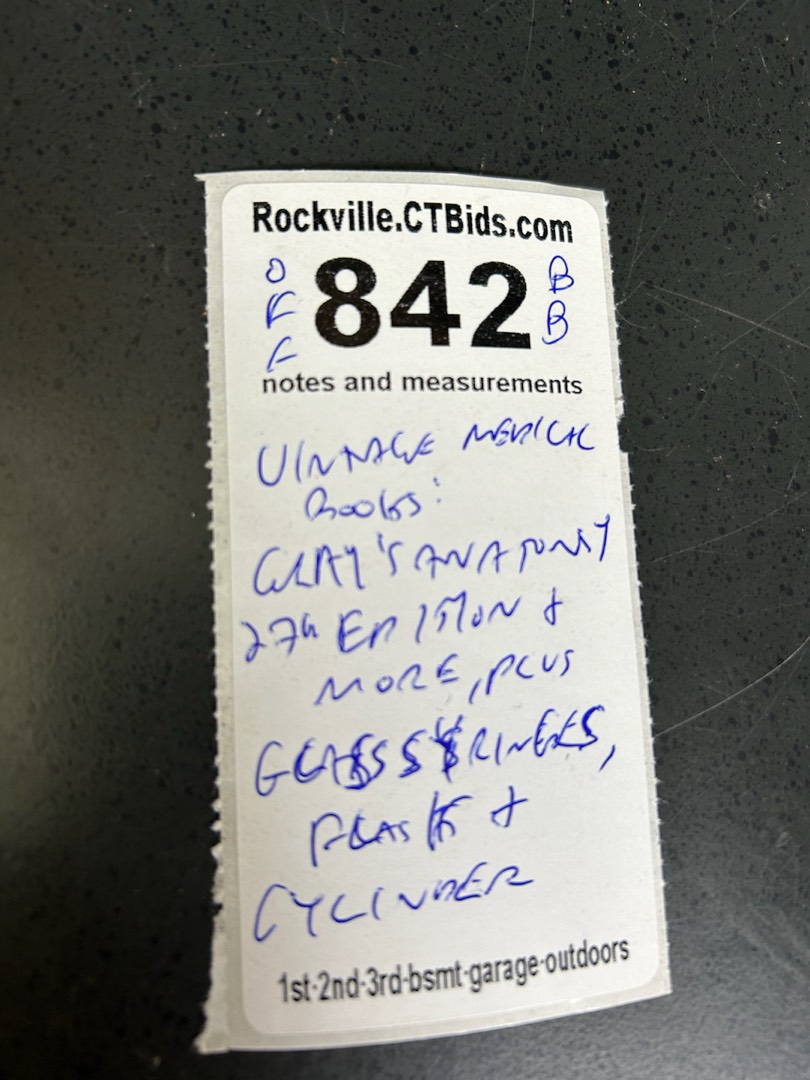 Rockville.CTBids.com
OFF 842 BB
notes and measurements
VINTAGE MEDICAL
BOOKS:
GRAY'S ANATOMY
27th EDITION &
MORE, PLUS
GLASS SYRINGES,
FLASK &
CYLINDER
1st-2nd-3rd-bsmt-garage-outdoors